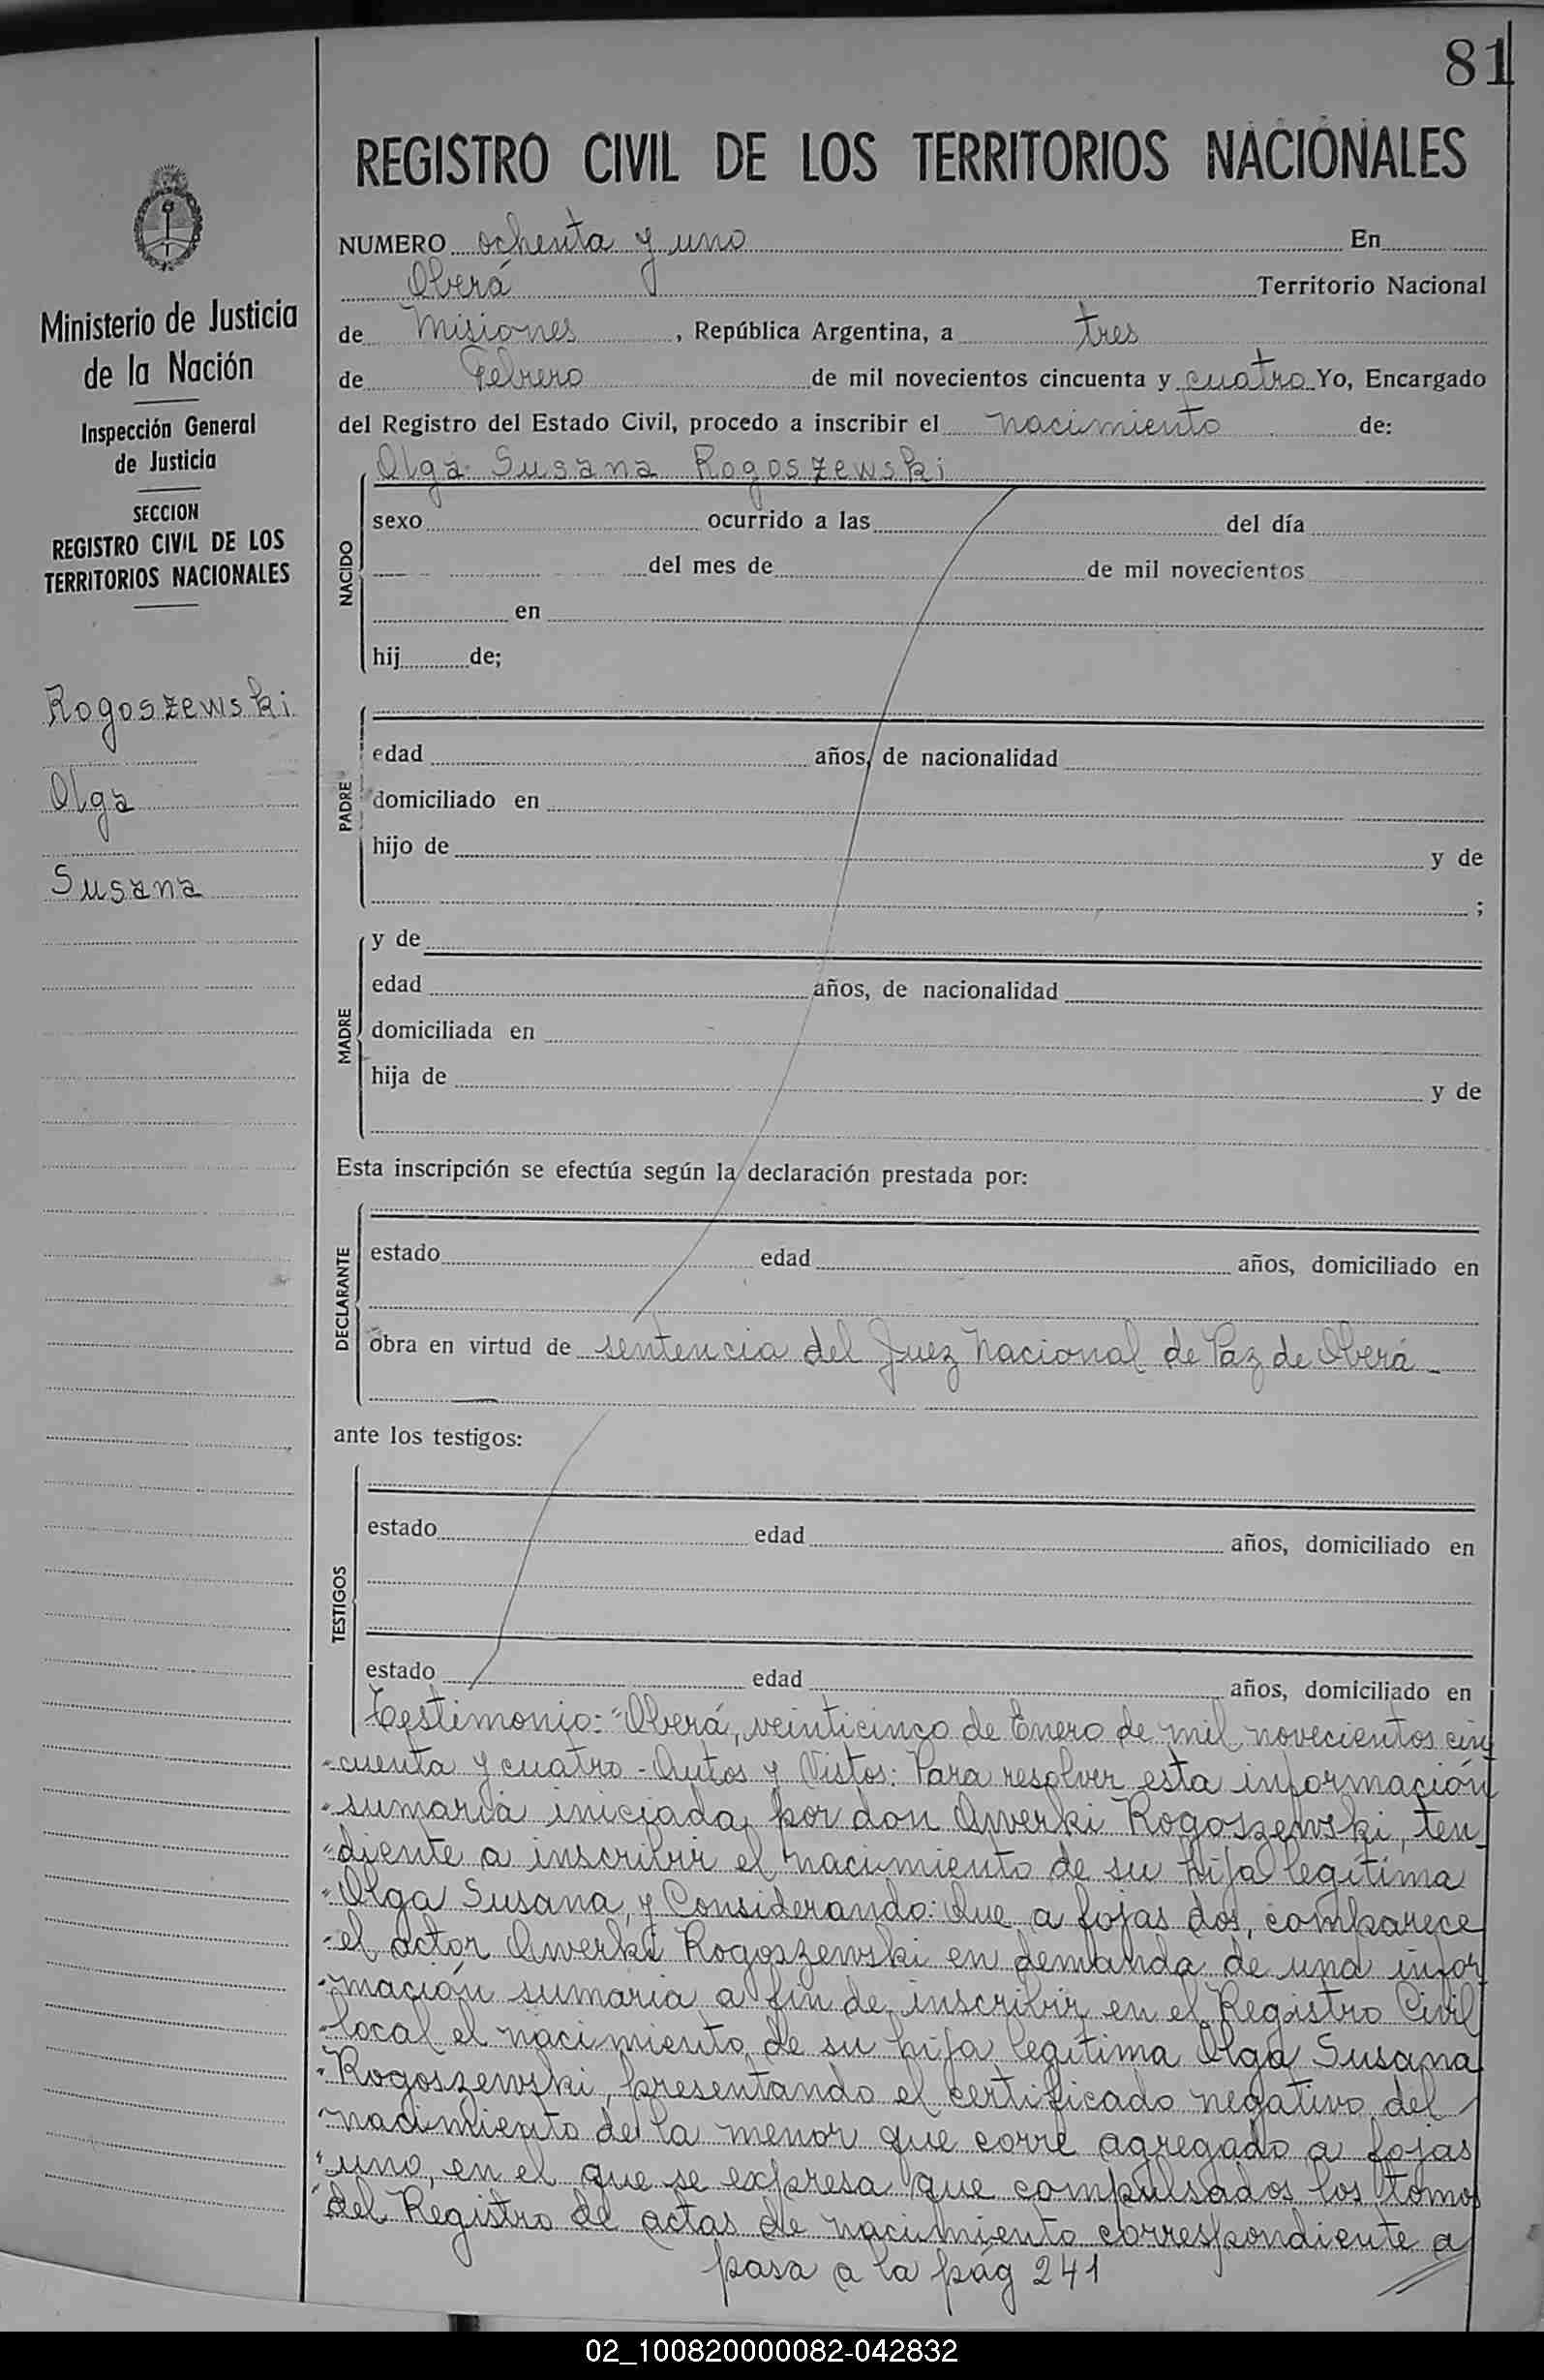 81
REGISTRO CIVIL DE LOS TERRITORIOS NACIONALES
Ministerio de Justicia
de la Nación
Inspección General
de Justicia
SECCION
REGISTRO CIVIL DE LOS
TERRITORIOS NACIONALES
Rogoszewski
Olga
Susana
NUMERO ochenta y uno En
Oberá Territorio Nacional
de Misiones, República Argentina, a tres
de Febrero de mil novecientos cincuenta y cuatro Yo, Encargado
del Registro del Estado Civil, procedo a inscribir el nacimiento de:
Olga Susana Rogoszewski
NACIDO
sexo ocurrido a las del día
del mes de de mil novecientos
en
hij de;
PADRE
edad años, de nacionalidad
domiciliado en
hijo de y de
;
MADRE
y de
edad años, de nacionalidad
domiciliada en
hija de y de
Esta inscripción se efectúa según la declaración prestada por:
DECLARANTE
estado edad años, domiciliado en
obra en virtud de sentencia del Juez Nacional de Paz de Oberá
ante los testigos:
TESTIGOS
estado edad años, domiciliado en
estado edad años, domiciliado en
Testimonio: "Oberá, veinticinco de Enero de mil novecientos cin
"cuenta y cuatro - Autos y Vistos: Para resolver esta información
"sumaria iniciada por don Awerki Rogoszewski, ten
"diente a inscribir el nacimiento de su hija legítima
"Olga Susana, y Considerando: Que a fojas dos, comparece
"el actor Awerki Rogoszewski en demanda de una infor
"mación sumaria a fin de inscribir en el Registro Civil
"local el nacimiento de su hija legítima Olga Susana
"Rogoszewski, presentando el certificado negativo del
"nacimiento de la menor que corre agregado a fojas
"uno, en el que se expresa que compulsados los tomos
"del Registro de actas de nacimiento correspondiente a
pasa a la pág 241
02_100820000082-042832